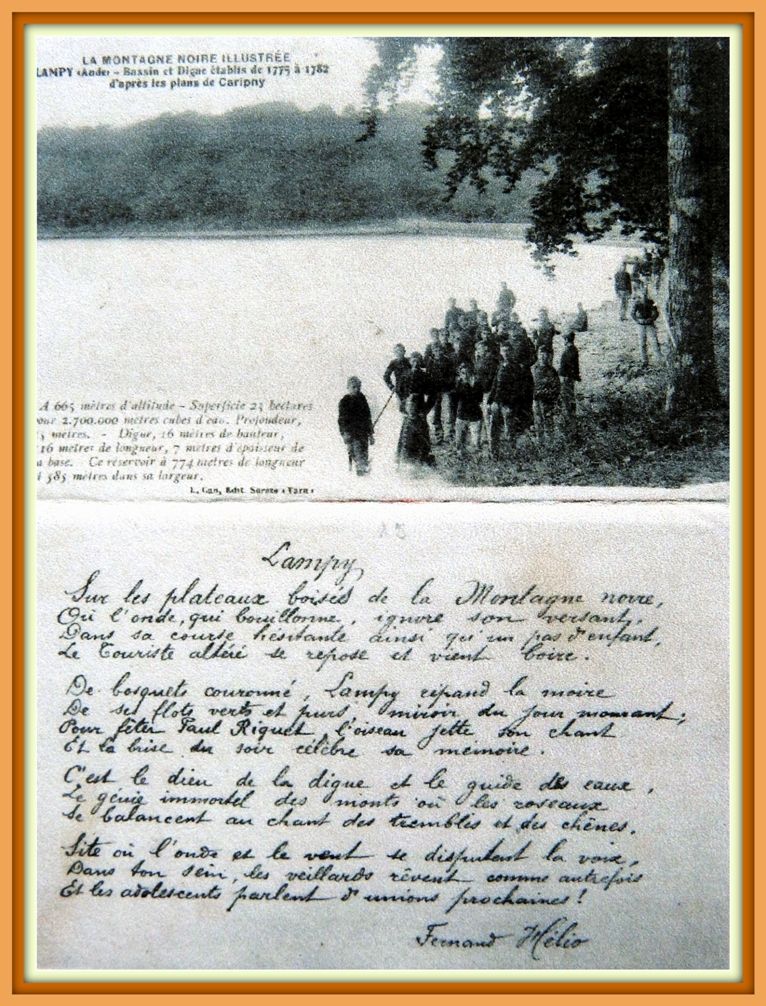 LA MONTAGNE NOIRE ILLUSTRÉE
LAMPY (Aude) - Bassin et Digue établis de 1775 à 1782
d'après les plans de Caripny
A 665 mètres d'altitude - Superficie 23 hectares
our 2.700.000 mètres cubes d'eau. Profondeur,
5 mètres. - Digue, 16 mètres de hauteur,
16 mètres de longueur, 7 mètres d'épaisseur de
a base. Ce réservoir à 774 mètres de longueur
t 585 mètres dans sa largeur.
L. Gan, Edit. Sorèze (Tarn)
Lampy
Sur les plateaux boisés de la Montagne noire,
Où l'onde, qui bouillonne, ignore son versant,
Dans sa course hésitante ainsi qu'un pas d'enfant,
Le Touriste altéré se repose et vient boire.
De bosquets couronné, Lampy répand la moire
De ses flots verts et purs, miroir du jour mourant;
Pour fêter Paul Riquet, l'oiseau jette son chant
Et la brise du soir célèbre sa mémoire.
C'est le dieu de la digue et le guide des eaux,
Le génie immortel des monts où les roseaux
Se balancent au chant des trembles et des chênes.
Site où l'onde et le vent se disputent la voix,
Dans ton sein, les veillards rêvent comme autrefois
Et les adolescents parlent d'unions prochaines!
Fernand Hélio